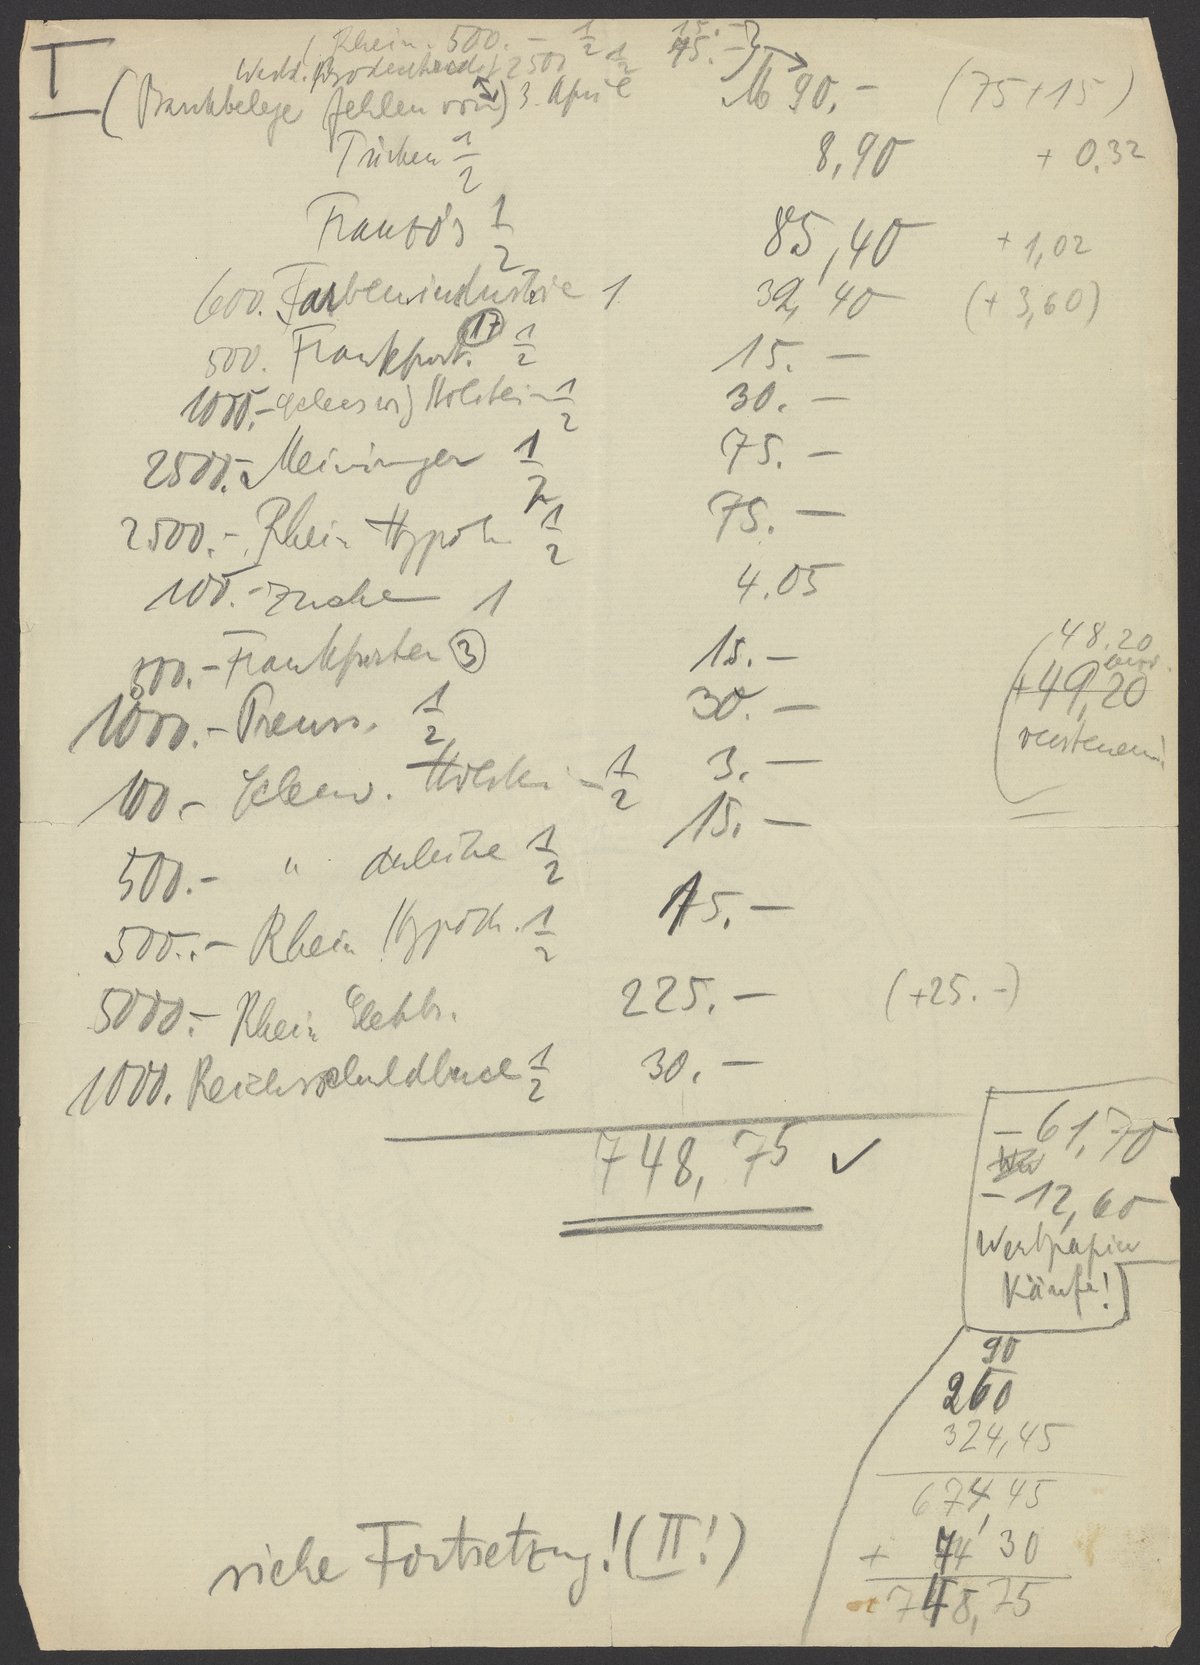 I
Rhein. 500.— 1/2 15.—
2500 1/2 75.—
(Bankbelege fehlen von) 3. April M 90.— (75+15)
1/2 8,90 + 0,32
1/2 85,40 + 1,02
600. Farbenindustrie 1 32,40 (+3,60)
500. Frankfurt. 17 1/2 15.—
1000.— Schlesw. Holstein 1/2 30.—
2500.— Meininger 1/2 75.—
2500.— Rhein Hypoth 1/2 75.—
100.— Zucker 1 4.05
48.20
500.— Frankfurter 3 15.—
+49,20
1000.— Preuss. 1/2 30.—
100.— Schlesw. Holstein 1/2 3.—
500.— " Anleihe 1/2 15.—
500.— Rhein Hypoth. 1/2 15.—
5000.— Rhein Elektr. 225.— (+25.—)
1000. Reichsschuldbuch 1/2 30.—
748,75 ✓
— 61,70
— 12,60
Wertpapier
Käufe!
90
260
324,45
674,45
+ 74,30
748,75
siehe Fortsetzung! (II!)